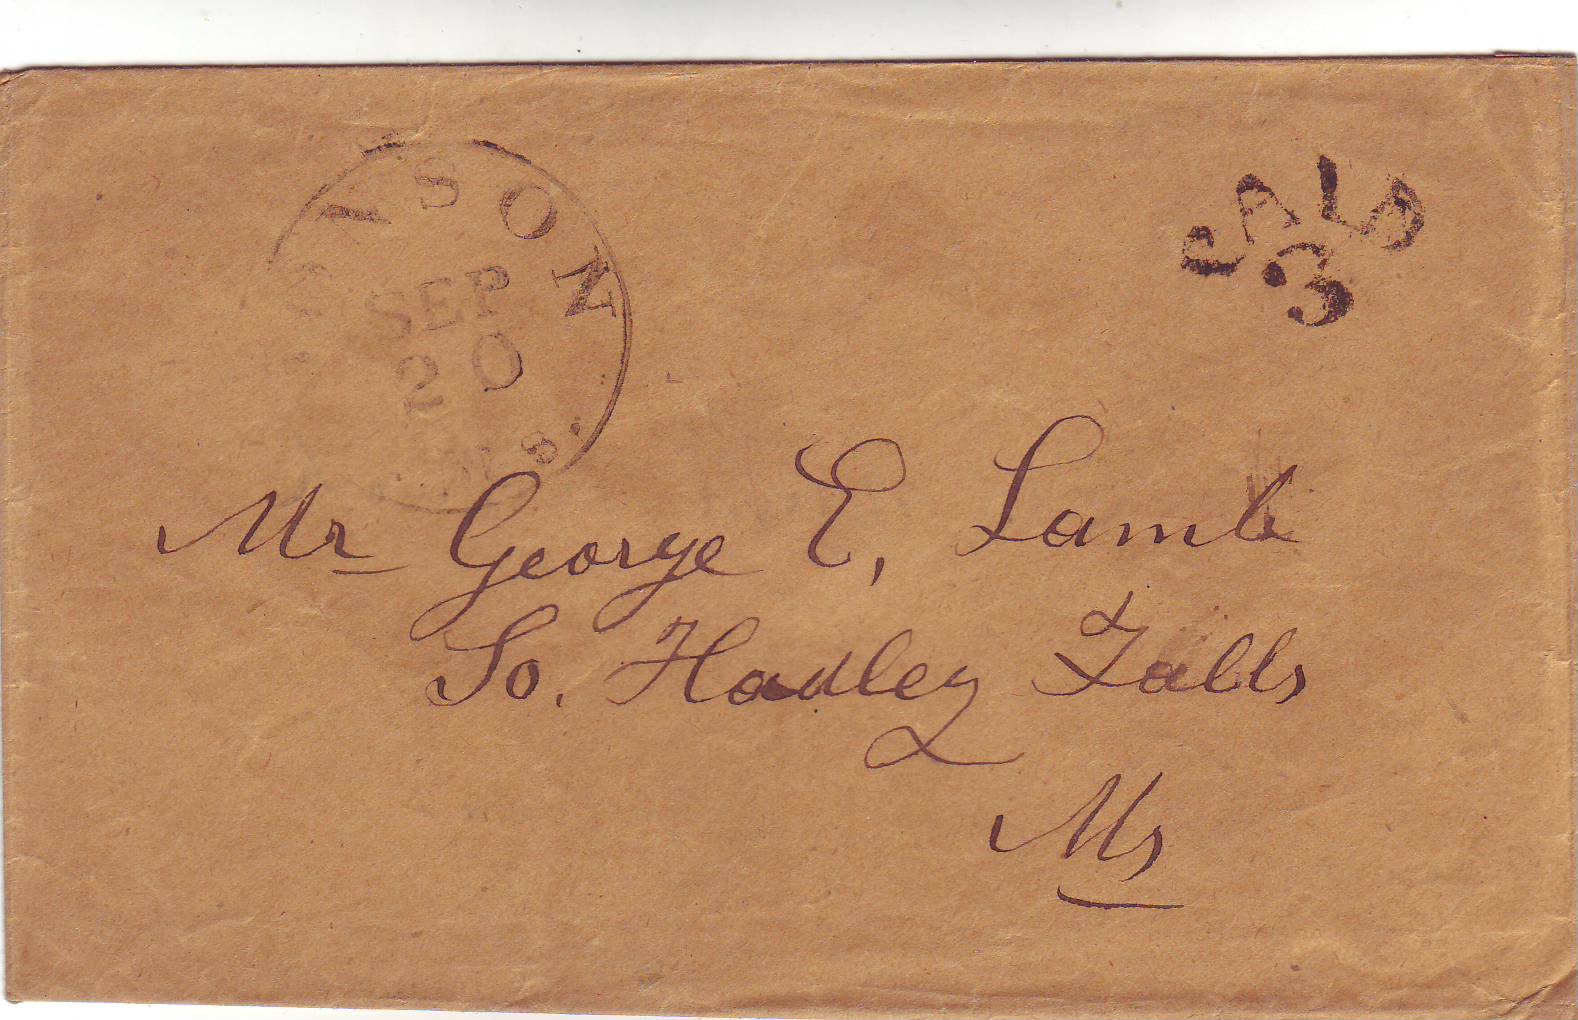 MONSON
SEP
20
PAID
3
Mr George E, Lamb
So. Hadley Falls
Ms